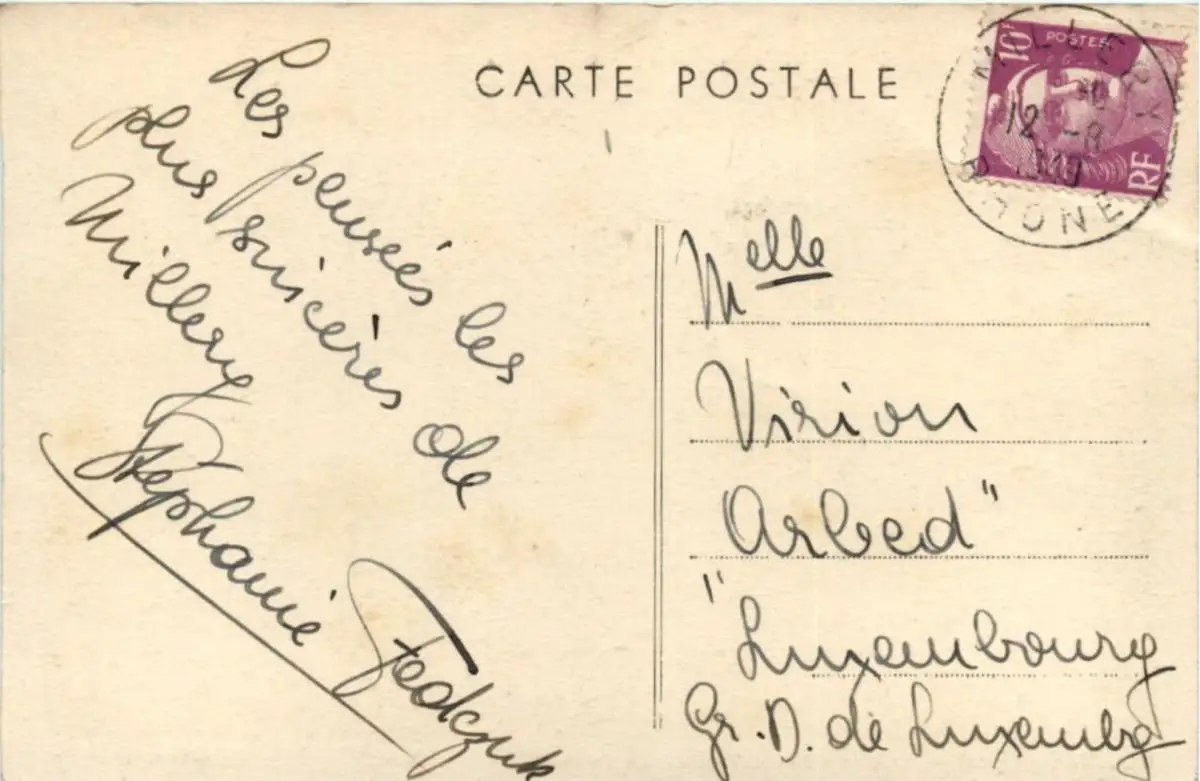 CARTE POSTALE
Les pensées les
plus sincères de
Millery
Stéphanie Fedczuk
10F
POSTES
RF
MILLERY
12 -8
RHONE
Melle
Virion
Arbed"
"Luxembourg
Gr. D. de Luxembg